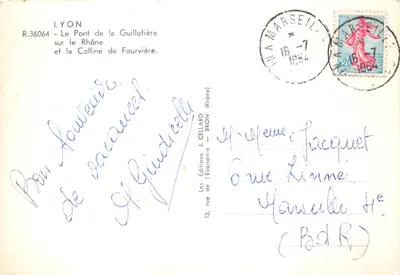 LYON
R.36064 - Le Pont de la Guillotière
sur le Rhône
et la Colline de Fourvière.
Bon Souvenir
de vacances
Les Editions J. CELLARD
13, rue de l'Économie - BRON (Rhône)
MARSEILLE
*
16-7
1964
MARSEILLE
16-7
1964
M. Mme Jacquet
6 rue
Marseille 4e
(BdR)